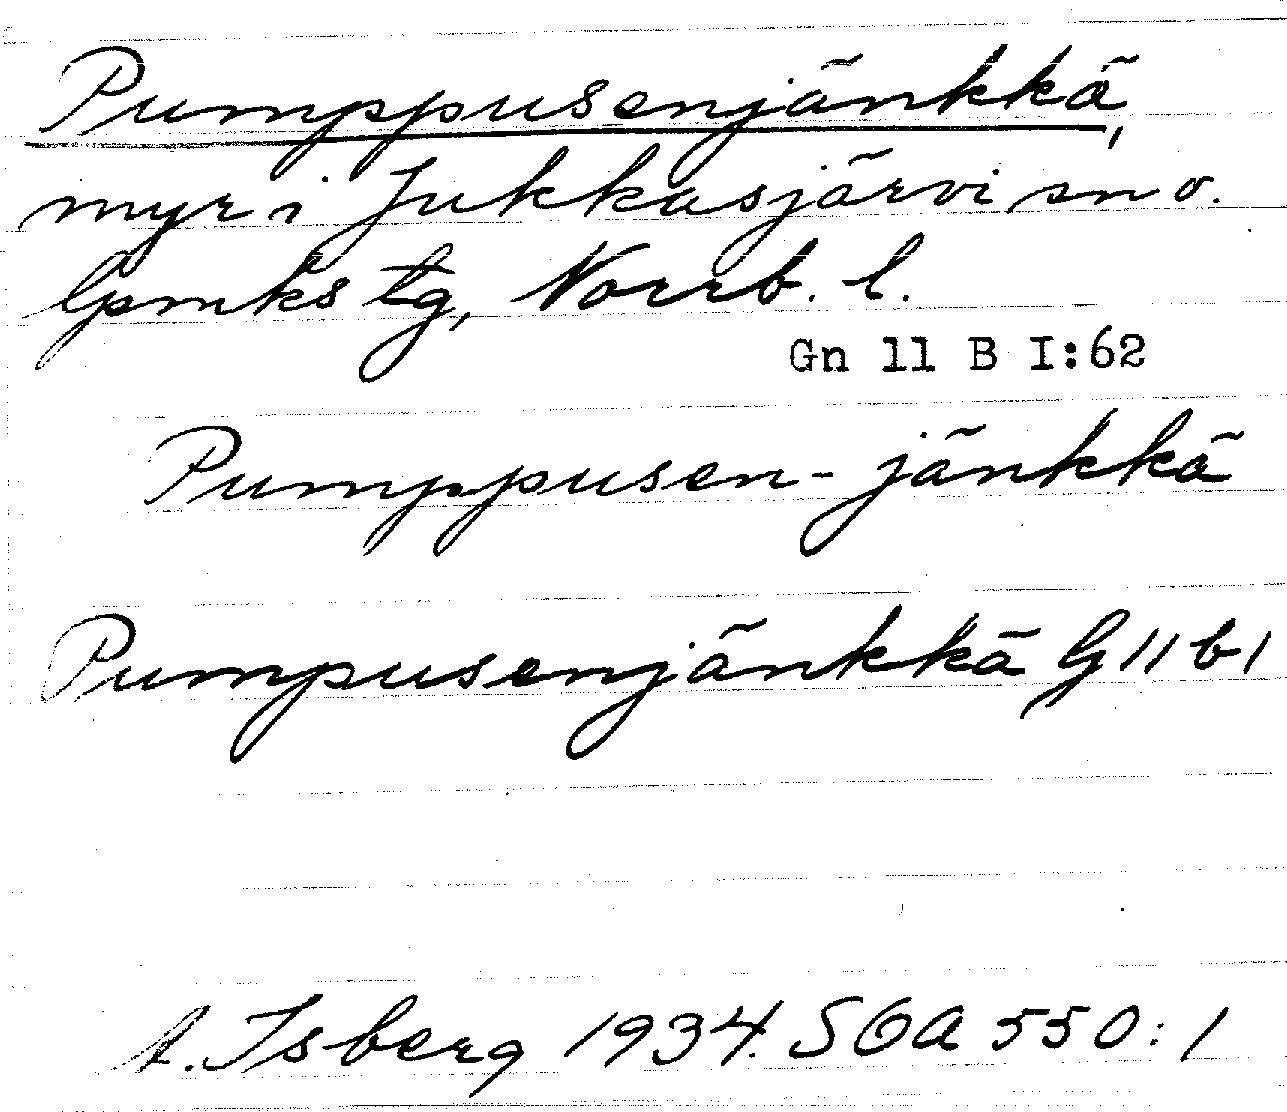 Pumppusenjänkkä,
myr i Jukkasjärvi sn o.
Gpmks tg, Norrb. l.
Gn 11 B I:62
Pumppusen-jänkkä
Pumpusenjänkkä G 11 b 1
A. Isberg 1934. SOA 550:1